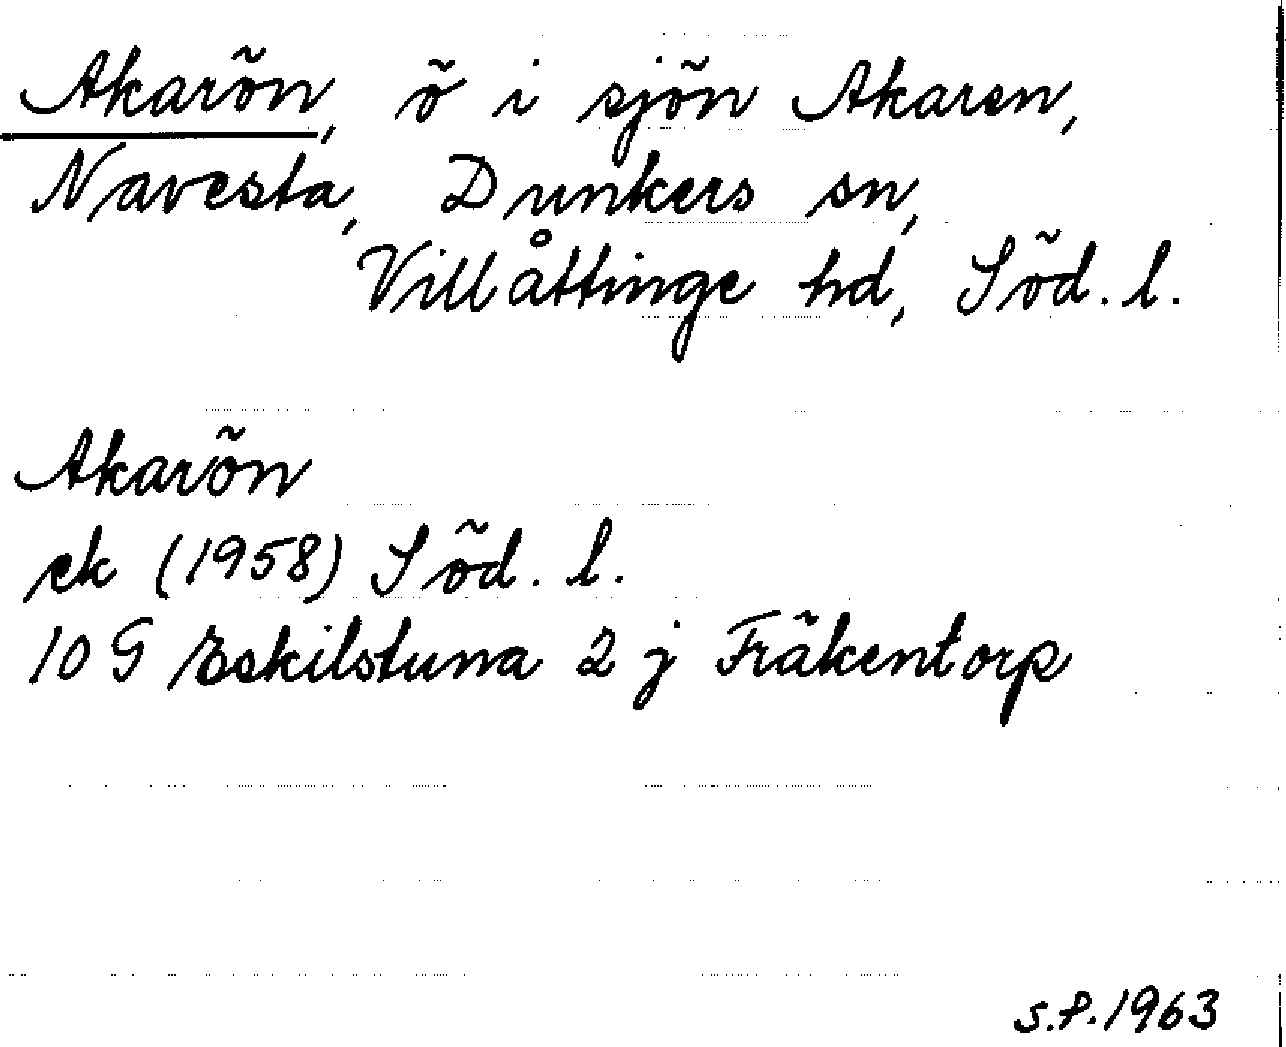 Akarön, ö i sjön Akaren,
Navesta, Dunkers sn,
Villåttinge hd, Söd. l.
Akarön
ek (1958) Söd. l.
10 G Eskilstuna 2 j Fräkentorp
S.P. 1963